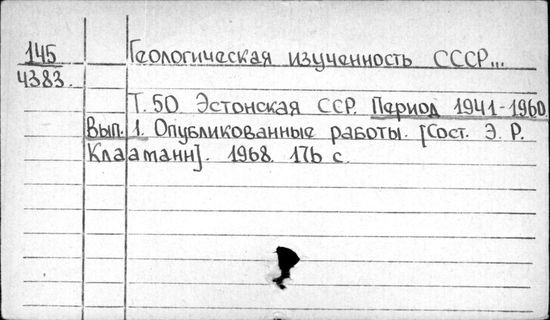 145 Геологическая изученность СССР...
4383.
Т. 50 Эстонская ССР. Период 1941-1960.
Вып. 1. Опубликованные работы. [Сост. Э. Р.
Клааманн]. 1968. 176 с.